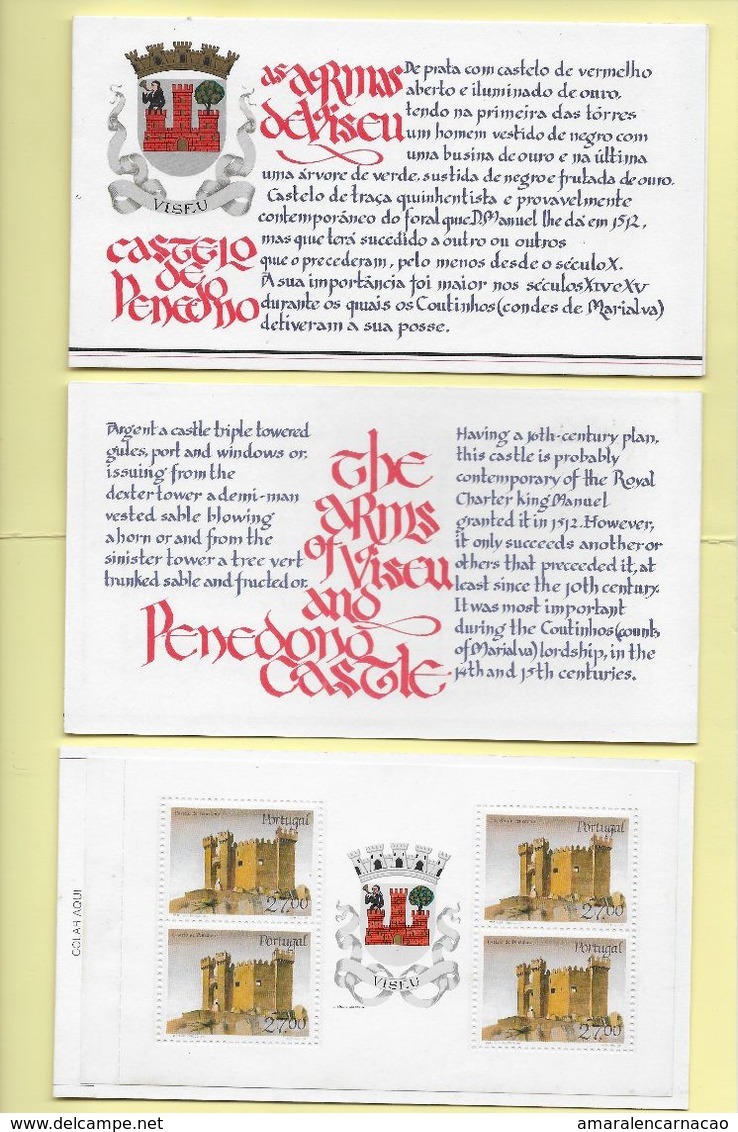 as armas
de Viseu
De prata com castelo de vermelho
aberto e iluminado de ouro,
tendo na primeira das tôrres
um homem vestido de negro com
uma busina de ouro e na última
uma árvore de verde, sustida de negro e frutada de ouro.
VISEU
Castelo
de
Penedono
Castelo de traça quinhentista e provavelmente
contemporâneo do foral que D. Manuel lhe dá em 1512,
mas que terá sucedido a outro ou outros
que o precederam, pelo menos desde o século X.
A sua importância foi maior nos séculos XIV e XV
durante os quais os Coutinhos (condes de Marialva)
detiveram a sua posse.
Argent a castle triple towered
gules, port and windows or.
issuing from the
dexter tower a demi-man
vested sable blowing
a horn or and from the
sinister tower a tree vert
trunked sable and fructed or.
The
arms
of Viseu
and
Penedono
Castle
Having a 16th-century plan,
this castle is probably
contemporary of the Royal
Charter king Manuel
granted it in 1512. However,
it only succeeds another or
others that preceeded it, at
least since the 10th century.
It was most important
during the Coutinhos (counts
of Marialva) lordship, in the
14th and 15th centuries.
COLAR AQUI
Portugal
27.00
Portugal
27.00
VISEU
Portugal
27.00
Portugal
27.00
delcampe.net
amaralencarnacao